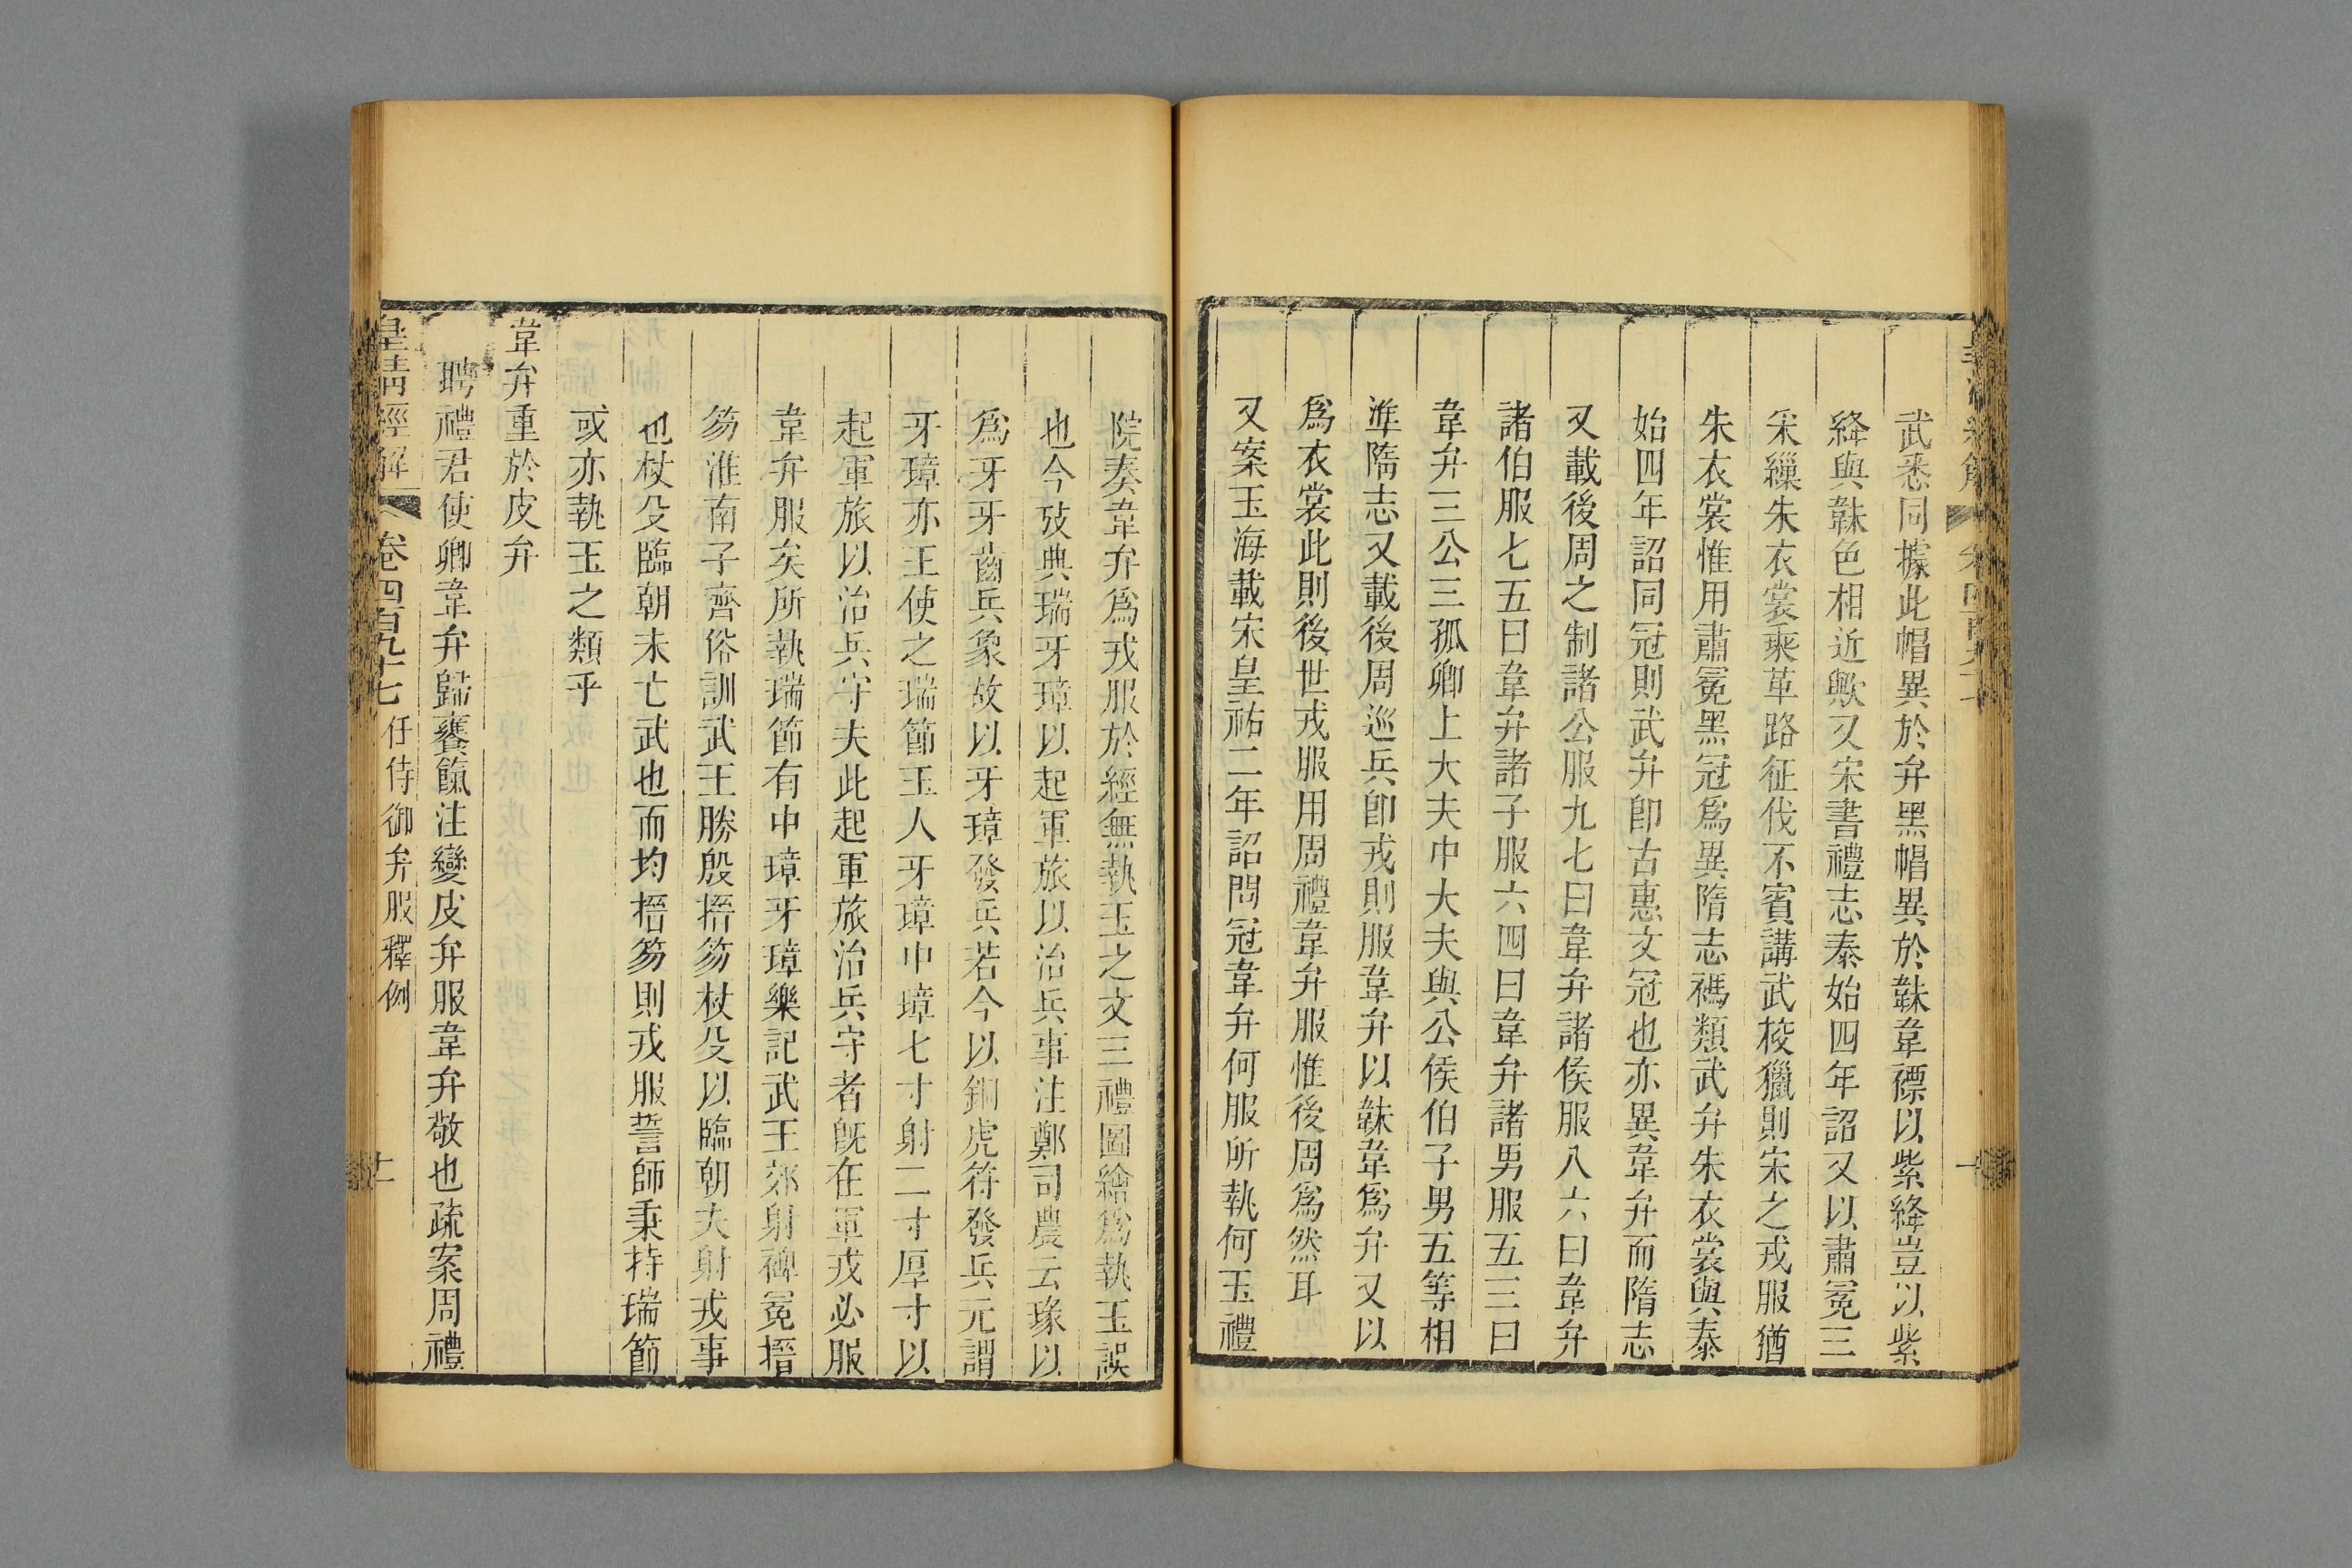 武悉同據此帽異於弁黑帽異於韎韋褾以紫絳豈以紫
絳與韎色相近歟又宋書禮志泰始四年詔又以肅冕三
采繅朱衣裳乘革路征伐不賓講武校獵則宋之戎服猶
朱衣裳惟用肅冕黑冠爲異隋志禡類武弁朱衣裳與泰
始四年詔同冠則武弁卽古惠文冠也亦異韋弁而隋志
又載後周之制諸公服九七曰韋弁諸侯服八六曰韋弁
諸伯服七五曰韋弁諸子服六四曰韋弁諸男服五三曰
韋弁三公三孤卿上大夫中大夫與公侯伯子男五等相
準隋志又載後周巡兵卽戎則服韋弁以韎韋爲弁又以
爲衣裳此則後世戎服用周禮韋弁服惟後周爲然耳
又案玉海載宋皇祐二年詔問冠韋弁何服所執何玉禮
院奏韋弁爲戎服於經無執玉之文三禮圖繪爲執玉誤
也今攷典瑞牙璋以起軍旅以治兵事注鄭司農云瑑以
爲牙牙齒兵象故以牙璋發兵若今以銅虎符發兵元謂
牙璋亦王使之瑞節玉人牙璋中璋七寸射二寸厚寸以
起軍旅以治兵守夫此起軍旅治兵守者旣在軍戎必服
韋弁服矣所執瑞節有中璋牙璋樂記武王郊射裨冕搢
笏淮南子齊俗訓武王勝殷搢笏杖殳以臨朝夫射戎事
也杖殳臨朝未亡武也而均搢笏則戎服誓師秉持瑞節
或亦執玉之類乎
韋弁重於皮弁
聘禮君使卿韋弁歸饔餼注變皮弁服韋弁敬也疏案周禮
皇清經解 卷四百九十七 任侍御弁服釋例 十一